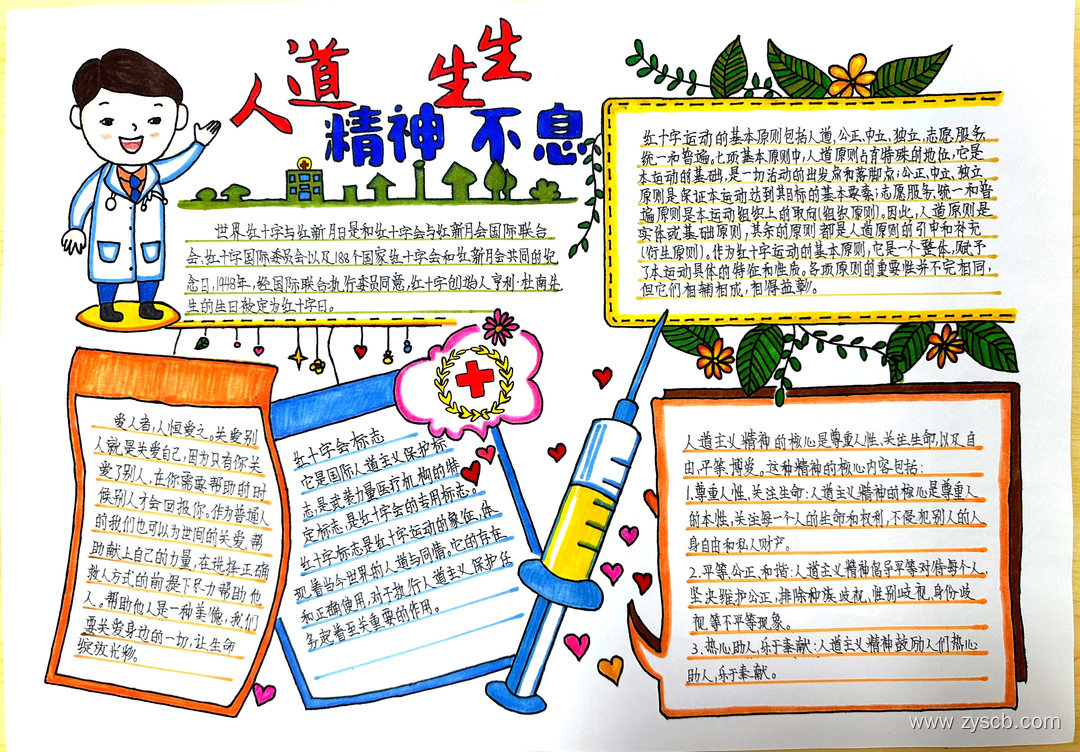 人道 生生
精神 不息
世界红十字与红新月日是和红十字会与红新月会国际联合
会、红十字国际委员会以及188个国家红十字会和红新月会共同的纪
念日,1948年,经国际联合执行委员同意,红十字创始人亨利·杜南先
生的生日被定为红十字日。
红十字运动的基本原则包括人道、公正、中立、独立、志愿服务、
统一和普遍。七项基本原则中,人道原则占有特殊的地位,它是
本运动的基础,是一切活动的出发点和落脚点;公正、中立、独立、
原则是保证本运动达到其目标的基本要素;志愿服务、统一和普
遍原则是本运动组织上的取向(组织原则)。因此,人道原则是
实体或基础原则,其余的原则都是人道原则的引申和补充
(衍生原则)。作为红十字运动的基本原则,它是一个整体,赋予
了本运动具体的特征和性质。各项原则的重要性并不完相同,
但它们相辅相成,相得益彰。
爱人者,人恒爱之。关爱别
人就是关爱自己,因为只有你关
爱了别人,在你需要帮助的时
候别人才会回报你。作为普通人
的我们也可以为世间的关爱、帮
助献上自己的力量,在选择正确
救人方式的前提下尽力帮助他
人。帮助他人是一种美德,我们
要关爱身边的一切,让生命
绽放光物。
红十字会标志
它是国际人道主义保护标
志,是武装力量医疗机构的特
定标志,是红十字会的专用标志。
红十字标志是红十字运动的象征,体
现着当今世界的人道与同情。它的存在
和正确使用,对于执行人道主义保护任
务起着至关重要的作用。
人道主义精神的核心是尊重人性、关注生命,以及自
由、平等、博爱。这种精神的核心内容包括:
1.尊重人性、关注生命:人道主义精神的核心是尊重人
的本性,关注每一个人的生命和权利,不侵犯别人的人
身自由和私人财产。
2.平等、公正、和谐:人道主义精神倡导平等对待每个人,
坚决维护公正,排除种族歧视、性别歧视、身份歧
视等不平等现象。
3.热心助人,乐于奉献:人道主义精神鼓励人们热心
助人,乐于奉献。
www.zyscb.com